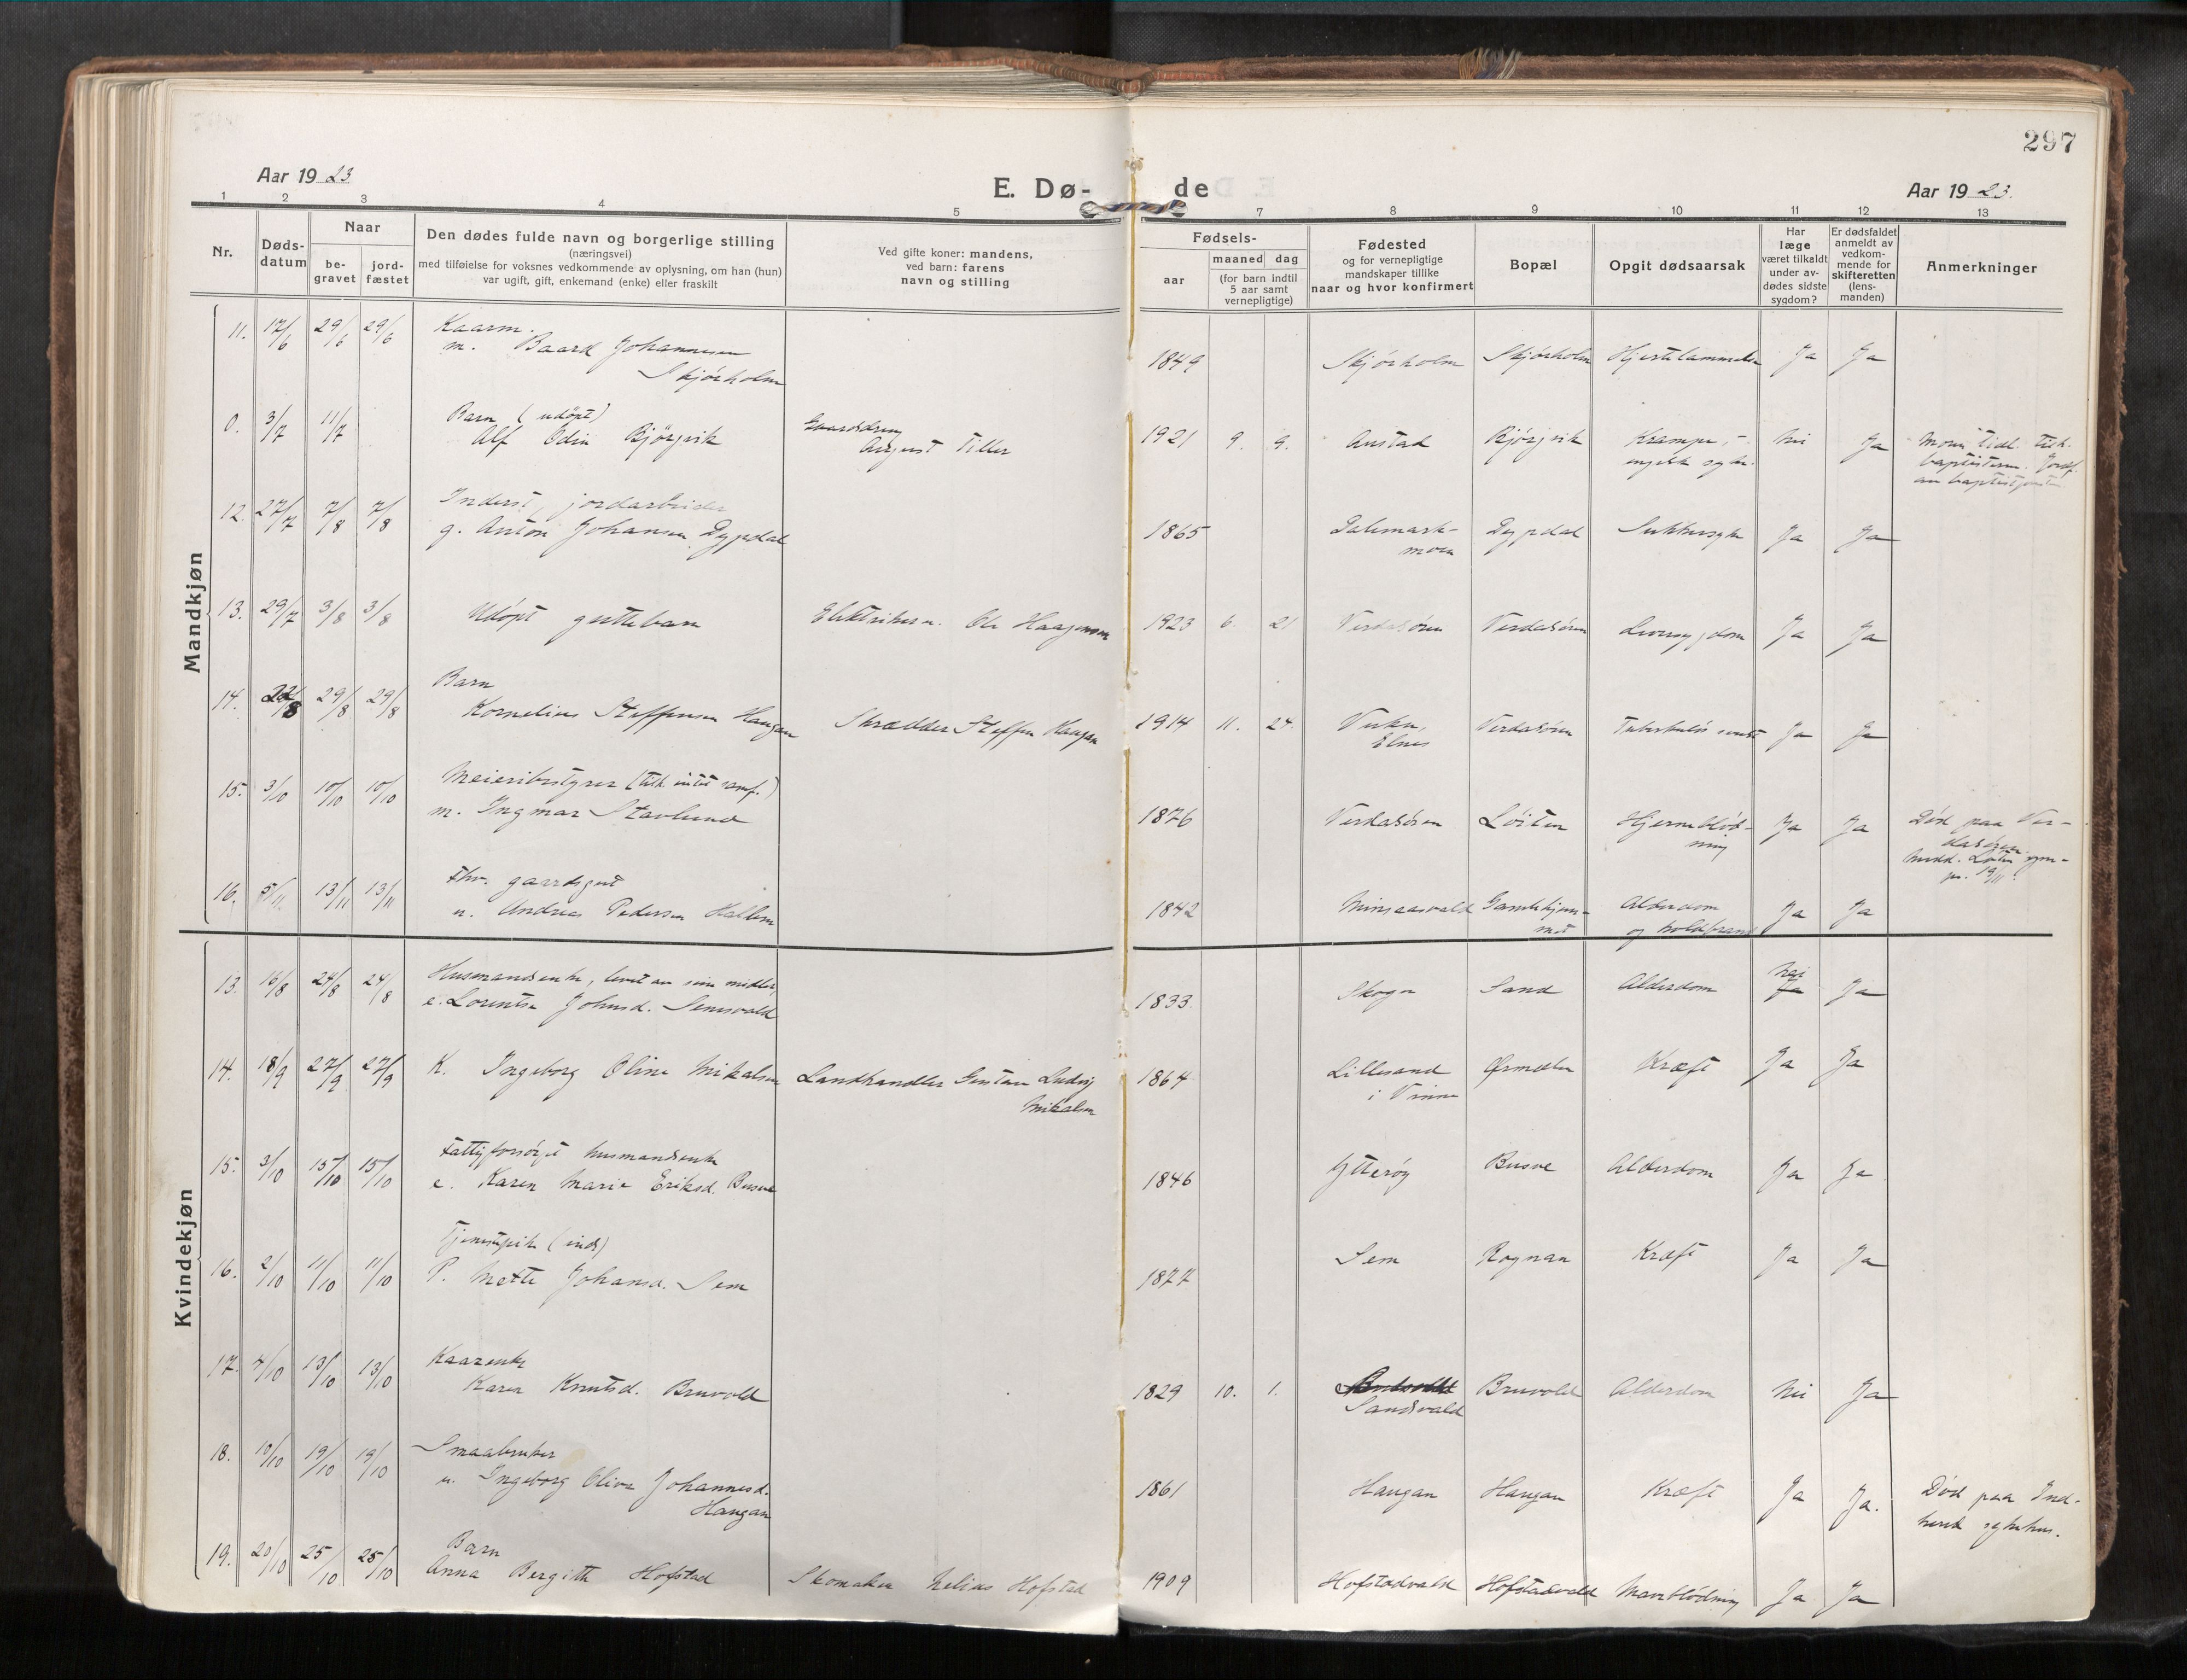 297
Aar 1923
E. Dø-
de
Aar 1923.
1 2 3 4 5 7 8 9 10 11 12 13
Nr.
Døds-
datum
Naar
be-
gravet
jord-
fæstet
Den dødes fulde navn og borgerlige stilling
(næringsvei)
med tilføielse for voksnes vedkommende av oplysning, om han (hun)
var ugift, gift, enkemand (enke) eller fraskilt
Ved gifte koner: mandens,
ved barn: farens
navn og stilling
Fødsels-
aar
maaned
dag
(for barn indtil
5 aar samt
vernepligtige)
Fødested
og for vernepligtige
mandskaper tillike
naar og hvor konfirmert
Bopæl
Opgit dødsaarsak
Har
læge
været tilkaldt
under av-
dødes sidste
sygdom?
Er dødsfaldet
anmeldt av
vedkom-
mende for
skifteretten
(lens-
manden)
Anmerkninger
Mandkjøn
11. 17/6 29/6 29/6 Kaarm.
m. Baard Johannesen
Skjørholm
1849 Skjørholm Skjørholm Hjertelammelse Ja Ja
0. 3/7 11/7 Barn (udöpt)
Alf Odin Bjørgvik
August Tiller
1921 9. 9. Austad Bjørgvik Krampe, -
engelsk syke. Nei Ja
12. 27/7 7/8 7/8 Inderst, jordarbeider
g. Anton Johansen Dypdal
1865 Dypdal Sukkersyke Ja Ja
13. 29/7 3/8 3/8 Udöpt guttebarn
Ole Haagensen
1923 6. 21 Verdalsören Verdalsören Ja Ja
14. 22/8 29/8 29/8 Barn
Kornelius Steffensen Haugan
Skrædder Steffen Haugan
1914 11. 24. Elnes Verdalsören Ja Ja
15. 3/10 10/10 10/10 Meieribestyrer
m. Ingmar Stavlund
1876 Verdalsören Löiten Hjerneblöd-
ning Ja Ja Död paa Ver-
dalsören.
16. 5/11 13/11 13/11 Fhv. gaardsgut
u. Andreas Pedersen Hallem
1842 Minsaasvald Gamlehjem-
met Alderdom
og koldbrand Ja Ja
Kvindekjøn
13. 16/8 24/8 24/8 Husmandsenke, levet av sine midler,
e. Lorentse Johnsd. Semsvald
1833. Skogn Sand Alderdom Nei
Ja Ja
14. 18/9 27/9 27/9 K. Ingeborg Oline Mikalsen
Landhandler Gustav Ludvig
Mikalsen
1864 Lillesand
i Vinne Ørmelen Kræft Ja Ja
15. 3/10 15/10 15/10 Fattigforsörget husmandsenke
e. Karen Marie Eriksd. Busve
1846 Ytteröy Busve Alderdom Ja Ja
16. 2/10 11/10 11/10 Tjenestepike (inds)
P. Mette Johansd. Sem
1877 Sem Rognan Kræft Ja Ja
17. 4/10 13/10 13/10 Kaarenke
Karen Knutsd. Bruvold
1829 10. 1.
Sandsvald Bruvold Alderdom Nei Ja
18. 10/10 19/10 19/10 Smaabruker
u. Ingeborg Olive Johannesd.
Haugan
1861 Haugan Haugan Kræft Ja Ja. Död paa Ind-
herred sykehus.
19. 20/10 25/10 25/10 Barn
Anna Bergitte Hofstad
Skomaker Nelius Hofstad
1909 Hofstadvald Hofstadvald Maveblödning Ja Ja